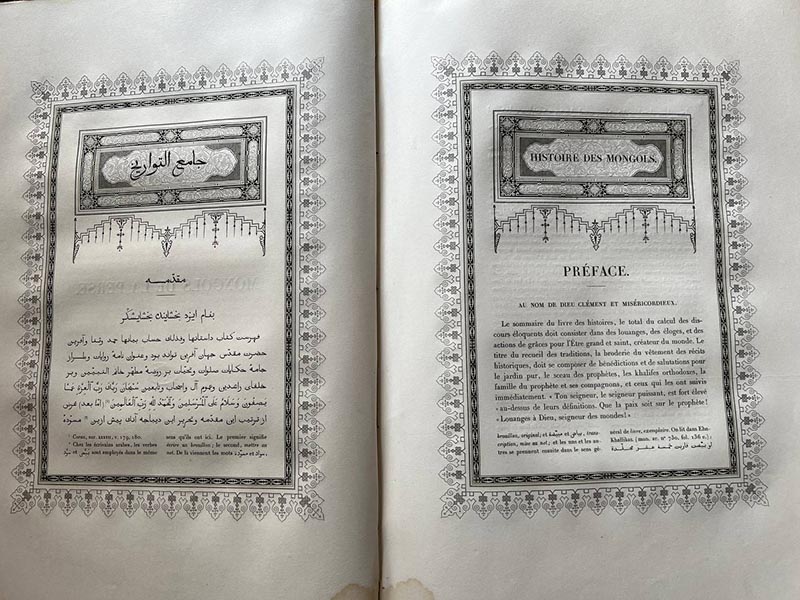 جامع التواریخ
مقدمه
بنام ایزد بخشاینده بخشایشگر
فهرست کتاب داستانها وفذلک حساب بیانها حمد وثنا وآفرین
حضرت مقدّس جهان آفرین تواند بود وعنوان نامهٔ روایات وطراز
جامهٔ حکایات صلوات وتحیّات بر روضهٔ مطهّر خاتم النبیّین وبر
خلفای راشدین وعموم آل واصحاب وتابعین سُبْحَانَ رَبِّكَ رَبِّ الْعِزَّةِ عَمَّا
يَصِفُونَ وَسَلَامٌ عَلَى الْمُرْسَلِينَ وَالْحَمْدُ لِلّٰهِ رَبِّ الْعَالَمِينَ (¹) (امّا بعد)
از ترتیب این مقدّمه وتحریر این دیباجه آنک پیش ازین (²) مسوّدهٔ
¹ Coran, sur. XXXVII, v. 179, 180.
² Chez les écrivains arabes, les verbes
سوّد et بيّض sont employés dans le même
sens qu'ils ont ici. Le premier signifie
écrire au brouillon; le second, mettre au
net. De là viennent les mots سواد et مسوّدة,
HISTOIRE DES MONGOLS.
PRÉFACE.
AU NOM DE DIEU CLÉMENT ET MISÉRICORDIEUX.
Le sommaire du livre des histoires, le total du calcul des dis-
cours éloquents doit consister dans des louanges, des éloges, et des
actions de grâces pour l'Être grand et saint, créateur du monde. Le
titre du recueil des traditions, la broderie du vêtement des récits
historiques, doit se composer de bénédictions et de salutations pour
le jardin pur, le sceau des prophètes, les khalifes orthodoxes, la
famille du prophète et ses compagnons, et ceux qui les ont suivis
immédiatement. « Ton seigneur, le seigneur puissant, est fort élevé
« au-dessus de leurs définitions. Que la paix soit sur le prophète!
« Louanges à Dieu, seigneur des mondes! »
brouillon, original; et بياض et مبيّضة, trans-
cription, mise au net; et les uns et les au-
tres se prennent ensuite dans le sens gé-
néral de livre, exemplaire. On lit dans Ebn-
Khallikan (man. ar. n° 730, fol. 136 v.):